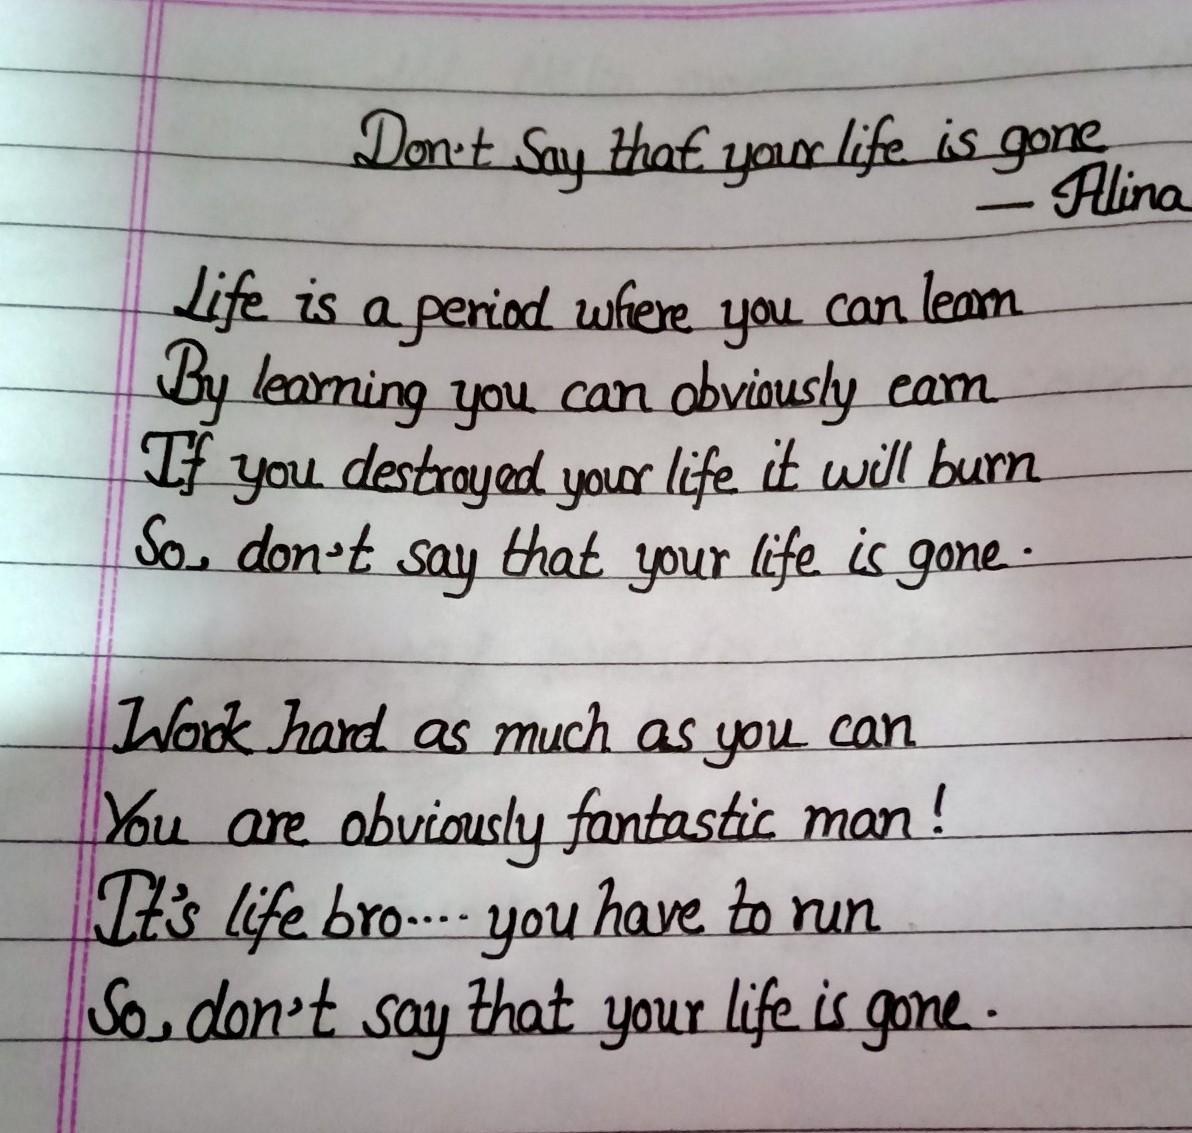 Don't Say that your life is gone
— Alina
Life is a period where you can learn
By learning you can obviously earn
If you destroyed your life it will burn
So, don't say that your life is gone.
Work hard as much as you can
You are obviously fantastic man!
It's life bro.... you have to run
So, don't say that your life is gone.